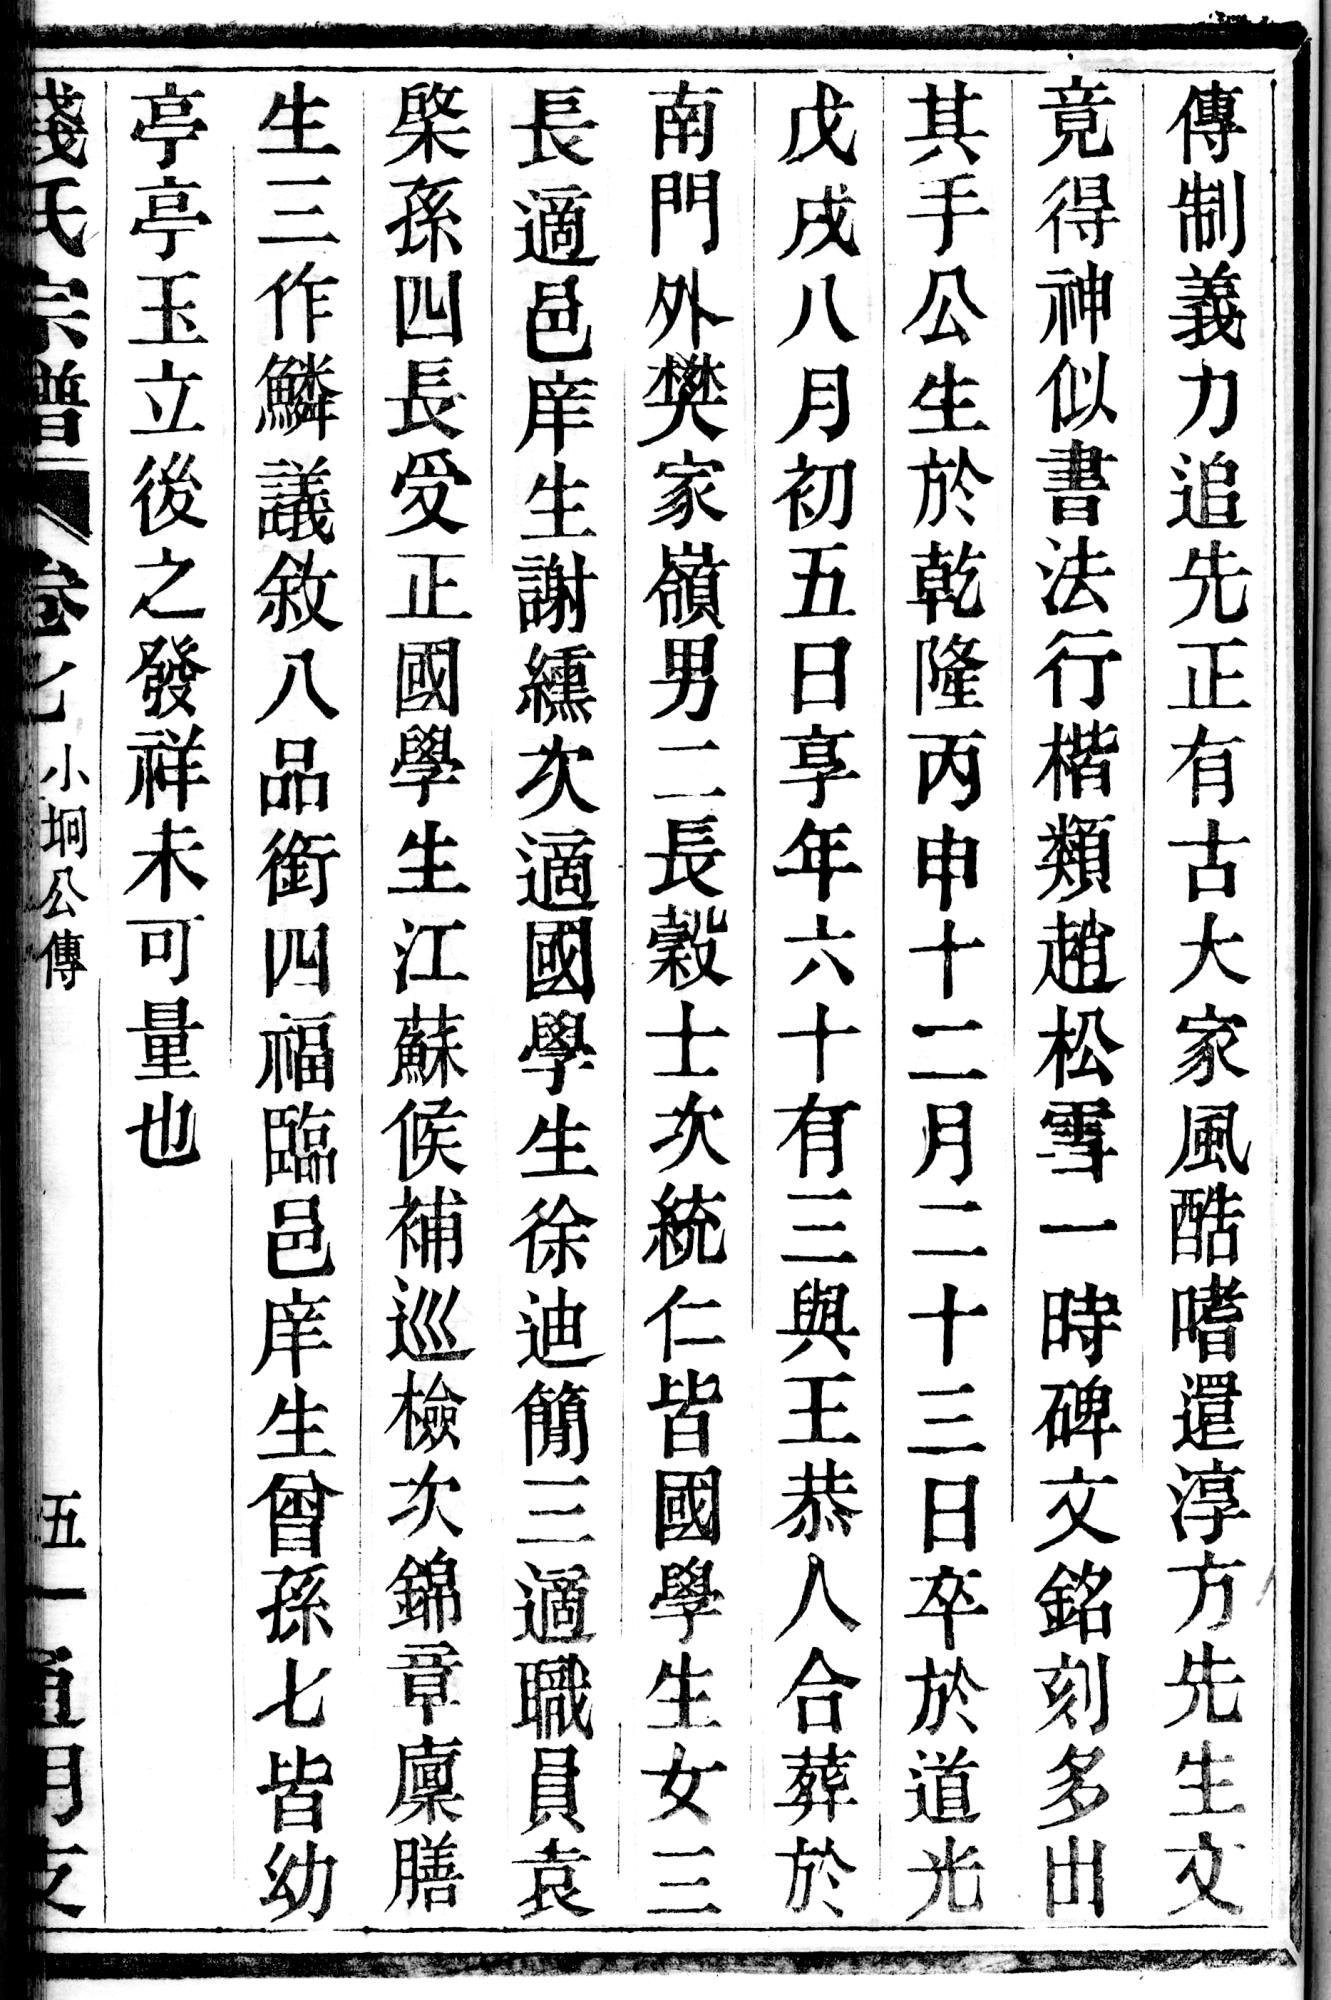 傳制義力追先正有古大家風酷嗜還淳方先生文
竟得神似書法行楷類趙松雪一時碑文銘刻多出
其手公生於乾隆丙申十二月二十三日卒於道光
戊戌八月初五日享年六十有三與王恭人合葬於
南門外樊家嶺男二長穀士次統仁皆國學生女三
長適邑庠生謝纁次適國學生徐迪簡三適職員袁
棨孫四長受正國學生江蘇候補巡檢次錦章廩膳
生三作鱗議敘八品銜四福臨邑庠生曾孫七皆幼
亭亭玉立後之發祥未可量也
錢氏宗譜 卷七 小坰公傳 五一 通明支